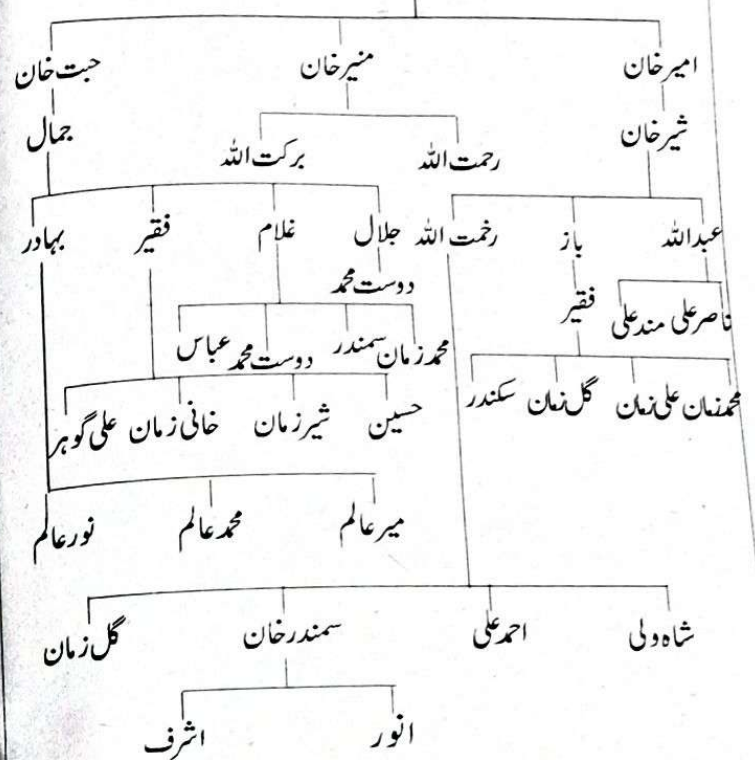 امیرخان منیرخان حبت خان
شیرخان جمال
رحمت اللہ برکت اللہ
عبداللہ باز رخمت اللہ جلال غلام فقیر بہادر
دوست محمد
ناصرعلی مندعلی فقیر
محمدزمان سمندر دوست محمد عباس
محمدزمان علی زمان گل زمان سکندر
حسین شیرزمان خانی زمان علی گوہر
میرعالم محمدعالم نورعالم
شاہ ولی احمدعلی سمندرخان گل زمان
انور اشرف